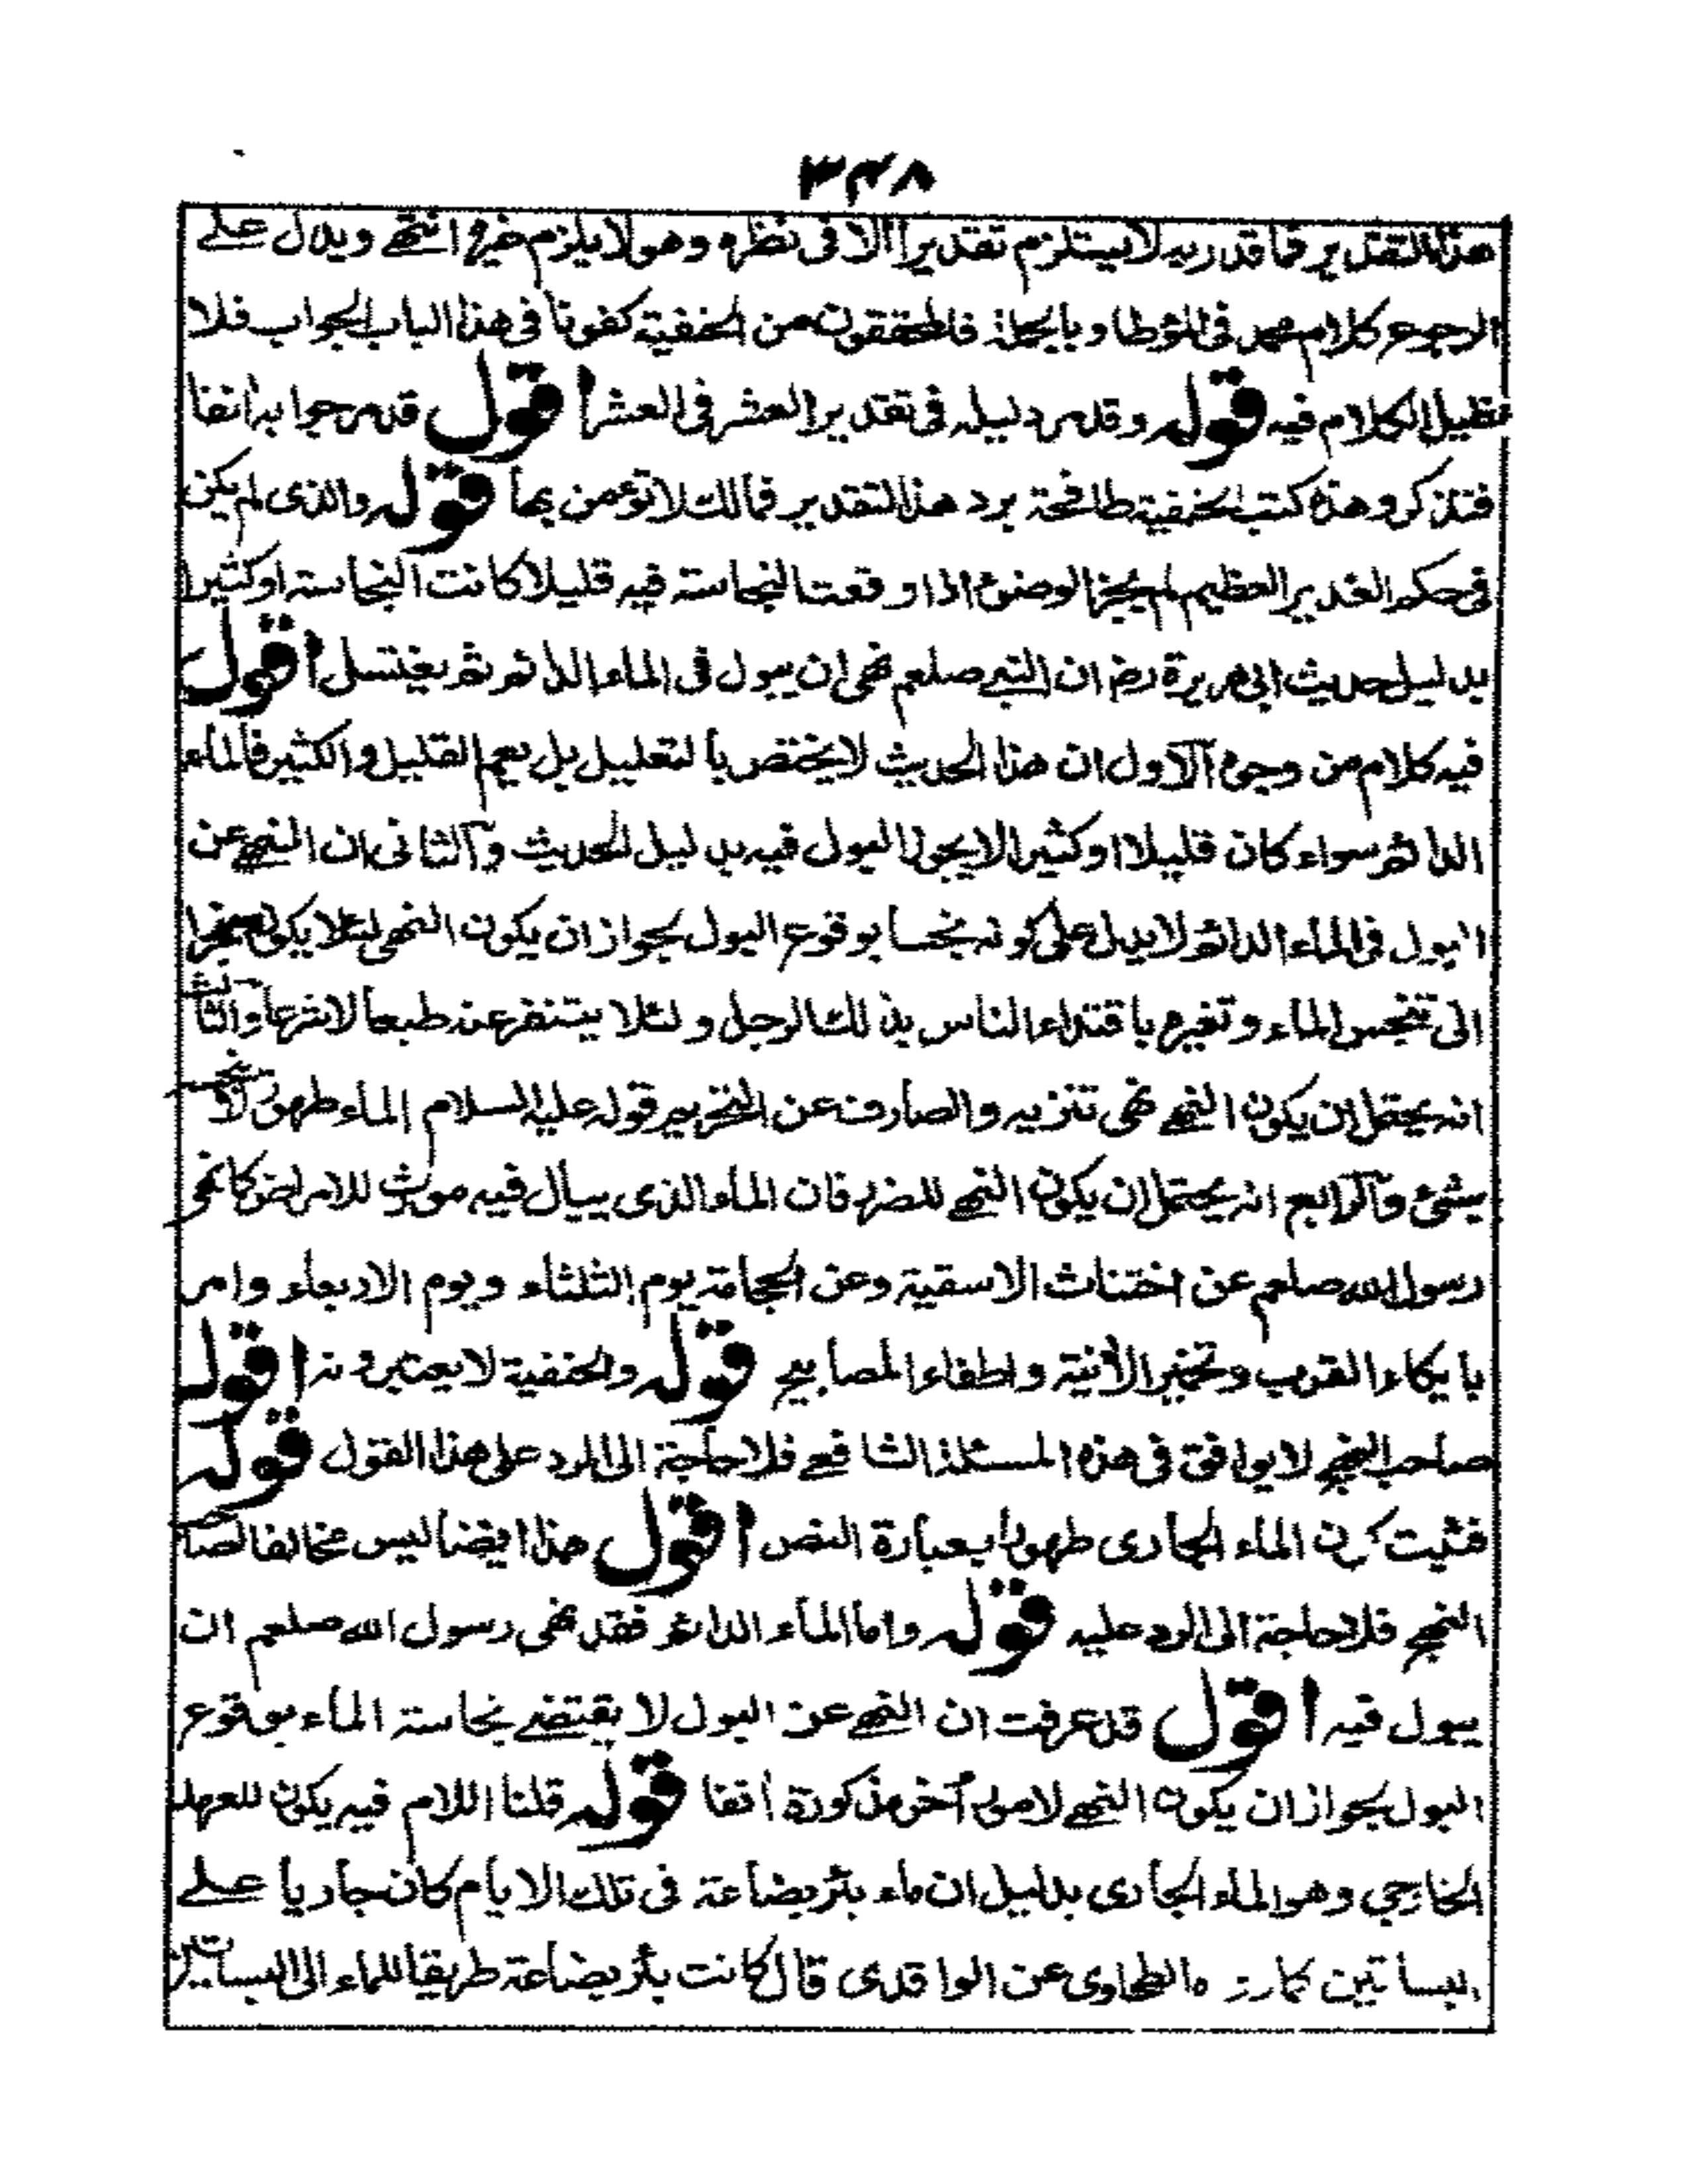 ٣٤٨
هذا التقدير فما قدر به لا يستلزم تقديرا الا فى نظره وهو لا يلزم غيره انتهى ويدل على
الرجوع كلام محمد فى المؤطا وبالجملة فالمحققون من الحنفية كفونا فى هذا الباب الجواب فلا
نطيل الكلام فيه قوله وقد مر دليله فى تقدير العشر فى العشر اقول قد مر جوابه آنفا
فتذكر وهذه كتب الحنفية طافحة برد هذا التقدير فمالك لا تؤمن بها قوله والذى لم يكن
فى حكم الغدير العظيم لم يجز الوضوء اذا وقعت النجاسة فيه قليلا كانت النجاسة او كثيرا
بدليل حديث ابى هريرة رض ان النبى صلعم نهى ان يبول فى الماء الدائم ثم يغتسل اقول
فيه كلام من وجوه آلاول ان هذا الحديث لا يختص بالتعليل بل يعم القليل والكثير فالماء
الدائم سواء كان قليلا او كثيرا لا يجوز البول فيه بدليل الحديث وآلثانى ان النهى عن
البول فى الماء الدائم لا يدل على كونه نجسا بوقوع البول لجواز ان يكون النهى لئلا يكون منجرا
الى تنجس الماء وتغيره باقتداء الناس بذلك الرجل ولئلا يتنفر عنه طبعا لا شرعا وآلثالث
انه يحتمل ان يكون النهى نهى تنزيه والصارف عن التحريم قوله عليه السلام الماء طهور لا ينجسه
شئ وآلرابع انه يحتمل ان يكون النهى للضرر فان الماء الذى يبال فيه مورث للامراض كما نهى
رسول الله صلعم عن اختناث الاسقية وعن الحجامة يوم الثلثاء ويوم الاربعاء وامر
بايكاء القرب وتخمير الآنية واطفاء المصابيح قوله والحنفية لا يعتبرونه اقول
صاحب النهج لا يوافق فى هذه المسئلة الشافعى فلا حاجة الى الرد على هذا القول قوله
فثبت كون الماء الجارى طهورا بعبارة النص اقول هذا ايضا ليس مخالفا لصاحب
النهج فلا حاجة الى الرد عليه قوله واما الماء الدائم فقد نهى رسول الله صلعم ان
يبول فيه اقول قد عرفت ان النهى عن البول لا يقتضى نجاسة الماء بوقوع
البول لجواز ان يكون النهى لامور آخر مذكورة آنفا قوله قلنا اللام فيه يكون للعهد
الخارجى وهو الماء الجارى بدليل ان ماء بئر بضاعة فى تلك الايام كان جاريا على
البساتين كما رواه الطحاوى عن الواقدى قال كانت بئر بضاعة طريقا للماء الى البساتين